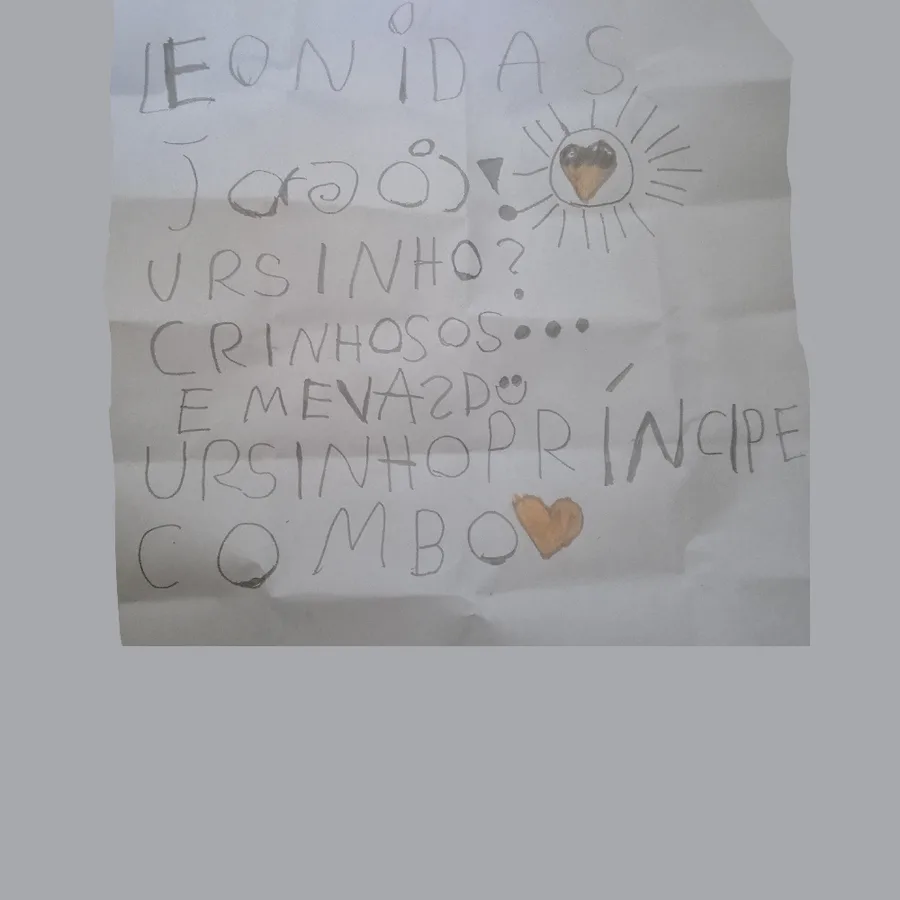 LEONiDAS
URSINHO?
CRINHOSOS...
E MEVASD
URSINHOPRÍNCIPE
COMBO